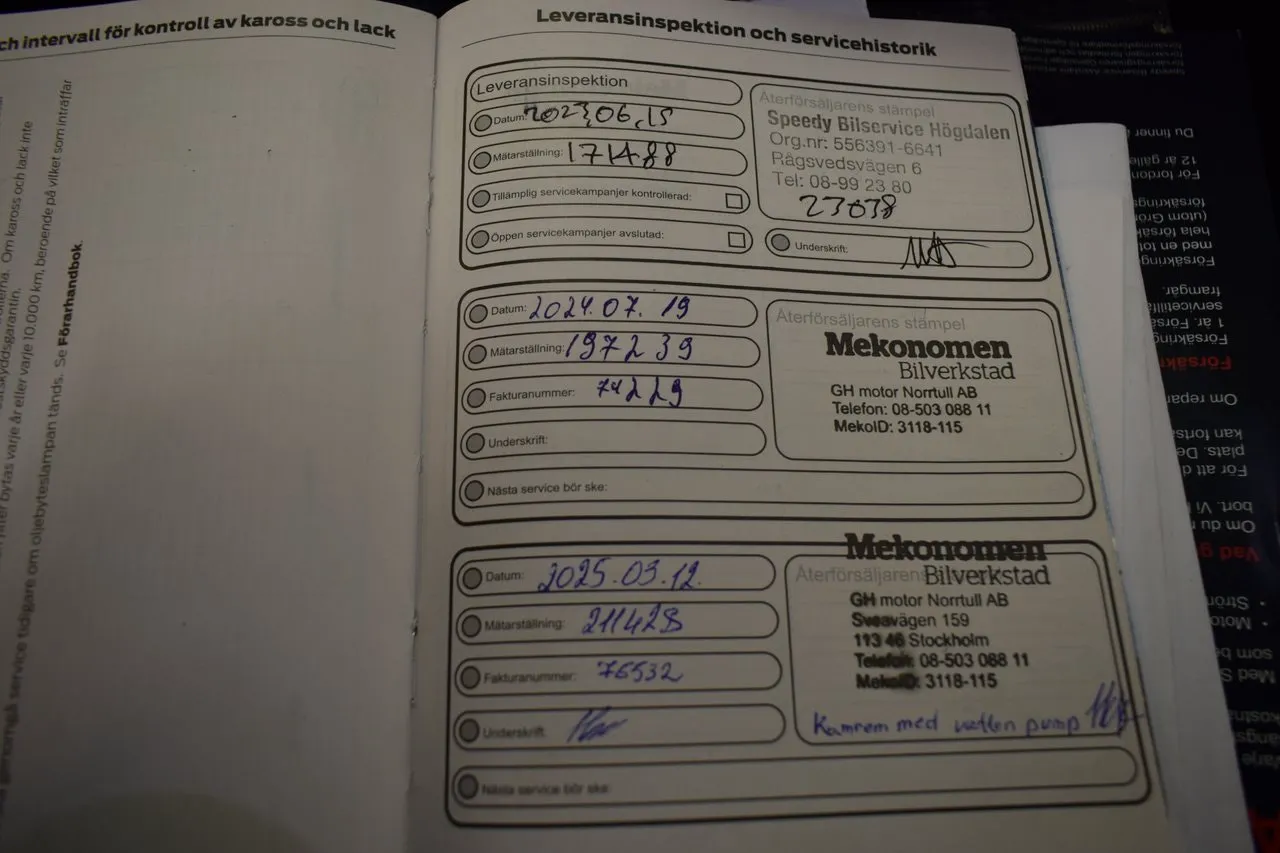 ch intervall för kontroll av kaross och lack
Om kaross och lack inte
varje år eller varje 10.000 km, beroende på vilket som inträffar
service tidigare om oljebyteslampan tänds. Se Förarhandbok.
Leveransinspektion och servicehistorik
Leveransinspektion
Datum: 2023,06,15
Mätarställning: 171488
Tillämplig servicekampanjer kontrollerad:
Öppen servicekampanjer avslutad:
Återförsäljarens stämpel
Speedy Bilservice Högdalen
Org.nr: 556391-6641
Rågsvedsvägen 6
Tel: 08-99 23 80
23038
Underskrift:
Datum: 2024.07.19
Mätarställning: 197239
Fakturanummer: 74229
Underskrift:
Nästa service bör ske:
Återförsäljarens stämpel
Mekonomen
Bilverkstad
GH motor Norrtull AB
Telefon: 08-503 088 11
MekoID: 3118-115
Datum: 2025.03.12.
Mätarställning: 211428
Fakturanummer: 76532
Underskrift:
Nästa service bör ske:
Mekonomen
Återförsäljaren Bilverkstad
GH motor Norrtull AB
Sveavägen 159
113 46 Stockholm
Telefon: 08-503 088 11
MekoID: 3118-115
Kamrem med vatten pump
Du finner
12 är gälla
För fordon
försäkrings
(utom Grön
hela försäk
med en tot
Försäkring
framgår.
servicetillf
1 år. Försä
Försäkring
Försäk
Om repar
kan forts
plats. De
För att d
bort. Vi
Om du
Vad g
• Strön
• Moto
som be
Med S